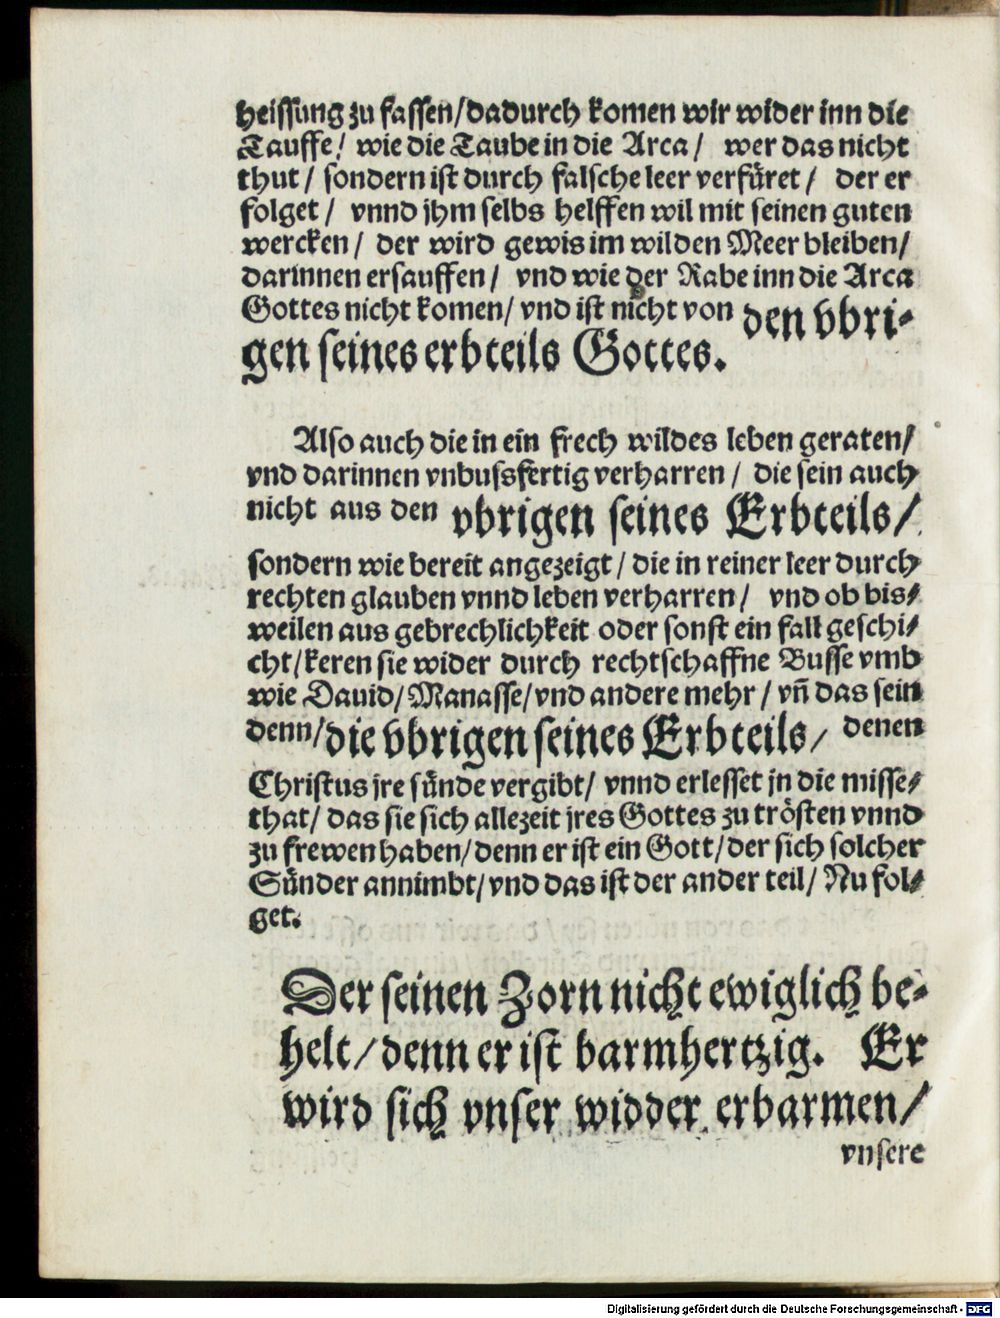 heissung zu fassen/dadurch komen wir wider inn die
Tauffe/ wie die Taube in die Arca/ wer das nicht
thut/ sondern ist durch falsche leer verfüret/ der er
folget/ vnnd jhm selbs helffen wil mit seinen guten
wercken/ der wird gewis im wilden Meer bleiben/
darinnen ersauffen/ vnd wie der Rabe inn die Arca
Gottes nicht komen/ vnd ist nicht von den vbri-
gen seines erbteils Gottes.
Also auch die in ein frech wildes leben geraten/
vnd darinnen vnbussfertig verharren/ die sein auch
nicht aus den vbrigen seines Erbteils/
sondern wie bereit angezeigt/ die in reiner leer durch
rechten glauben vnnd leben verharren/ vnd ob bis-
weilen aus gebrechlichkeit oder sonst ein fall geschi-
cht/keren sie wider durch rechtschaffne Busse vmb
wie Dauid/Manasse/vnd andere mehr/ vñ das sein
denn/die vbrigen seines Erbteils/ denen
Christus jre sünde vergibt/ vnnd erlesset jn die misse-
that/ das sie sich allezeit jres Gottes zu trösten vnnd
zu frewen haben/denn er ist ein Gott/der sich solcher
Sünder annimbt/vnd das ist der ander teil/ Nu fol-
get.
Der seinen Zorn nicht ewiglich be-
helt/denn er ist barmhertzig. Er
wird sich vnser widder erbarmen/
vnsere
Digitalisierung gefördert durch die Deutsche Forschungsgemeinschaft - DFG